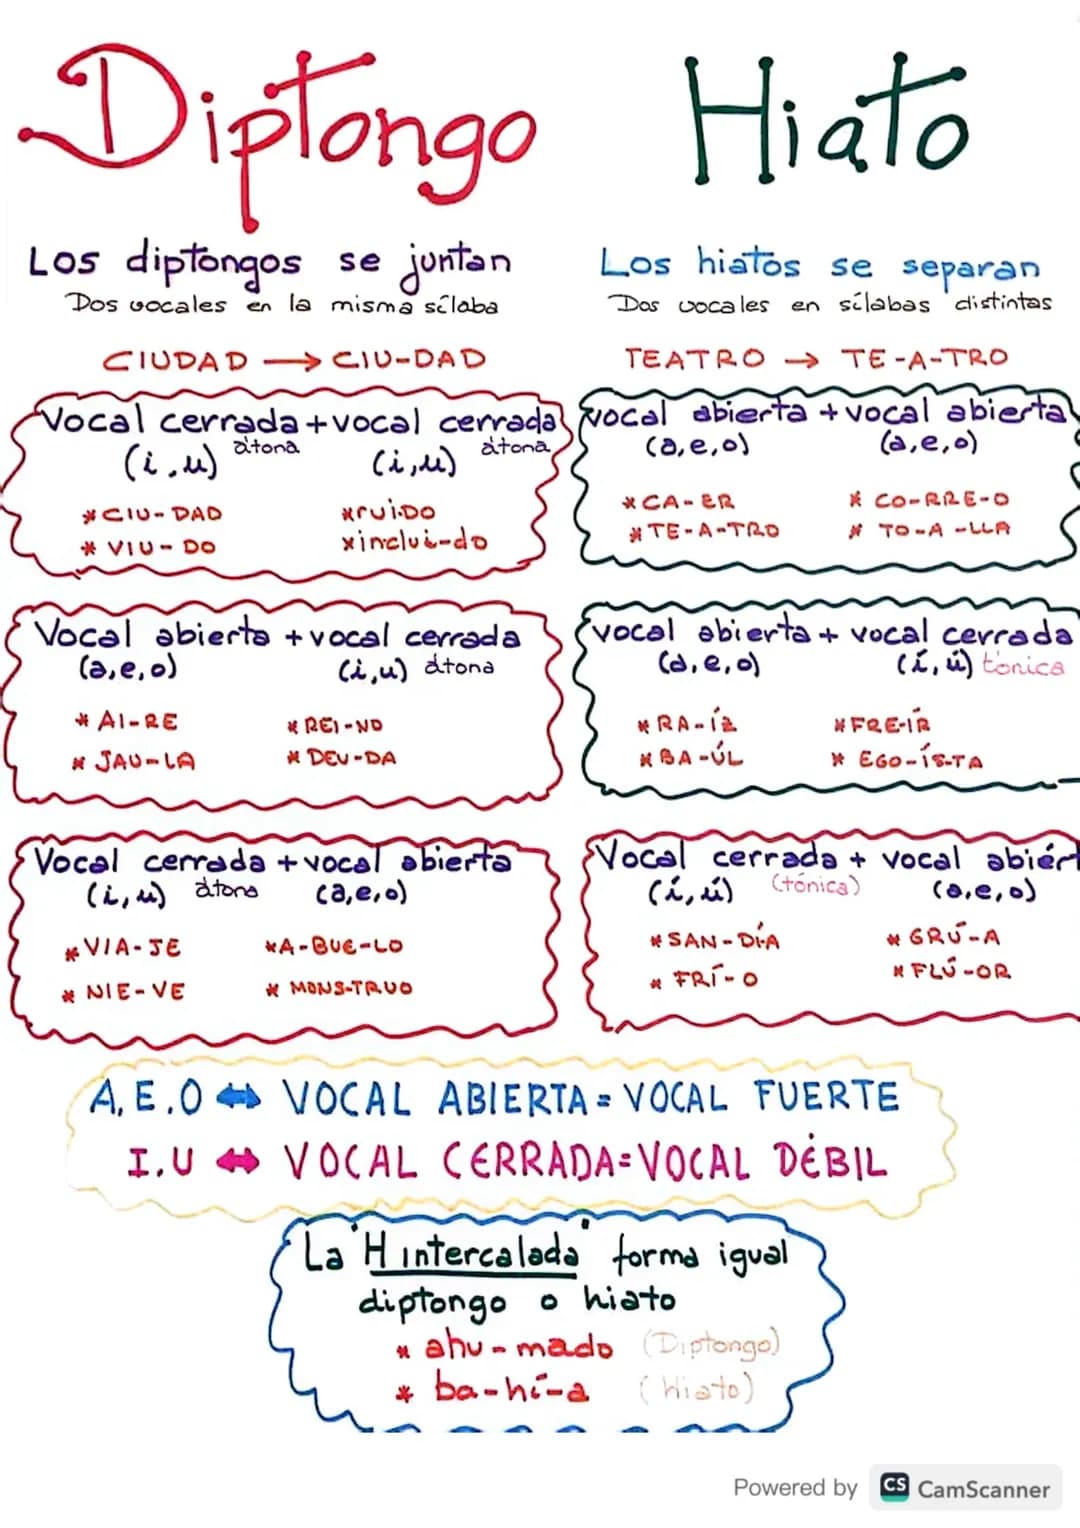 Diptongo
Los diptongos se juntan
Dos vocales en la misma sílaba
CIUDAD → CIU-DAD
Vocal cerrada + vocal cerrada
(i, u) átona (i, u) átona
* CIU-DAD xrui-DO
* VIU-DO xinclui-do
Vocal abierta + vocal cerrada
(a, e, o) (i, u) átona
* AI-RE * REI-NO
* JAU-LA * DEU-DA
Vocal cerrada + vocal abierta
(i, u) átona (a, e, o)
* VIA-JE * A-BUE-LO
* NIE-VE * MONS-TRUO
Hiato
Los hiatos se separan
Dos vocales en sílabas distintas
TEATRO → TE-A-TRO
vocal abierta + vocal abierta
(a, e, o) (a, e, o)
* CA-ER * CO-RRE-O
* TE-A-TRO * TO-A-LLA
vocal abierta + vocal cerrada
(a, e, o) (í, ú) tónica
* RA-ÍZ * FRE-ÍR
* BA-ÚL * EGO-ÍS-TA
Vocal cerrada + vocal abiért
(í, ú) (tónica) (a, e, o)
* SAN-DÍA * GRÚ-A
* FRÍ-O * FLÚ-OR
A, E, O ⇔ VOCAL ABIERTA = VOCAL FUERTE
I, U ⇔ VOCAL CERRADA = VOCAL DÉBIL
La "H intercalada" forma igual
diptongo o hiato
* ahu-mado (Diptongo)
* ba-hí-a (Hiato)
Powered by CS CamScanner